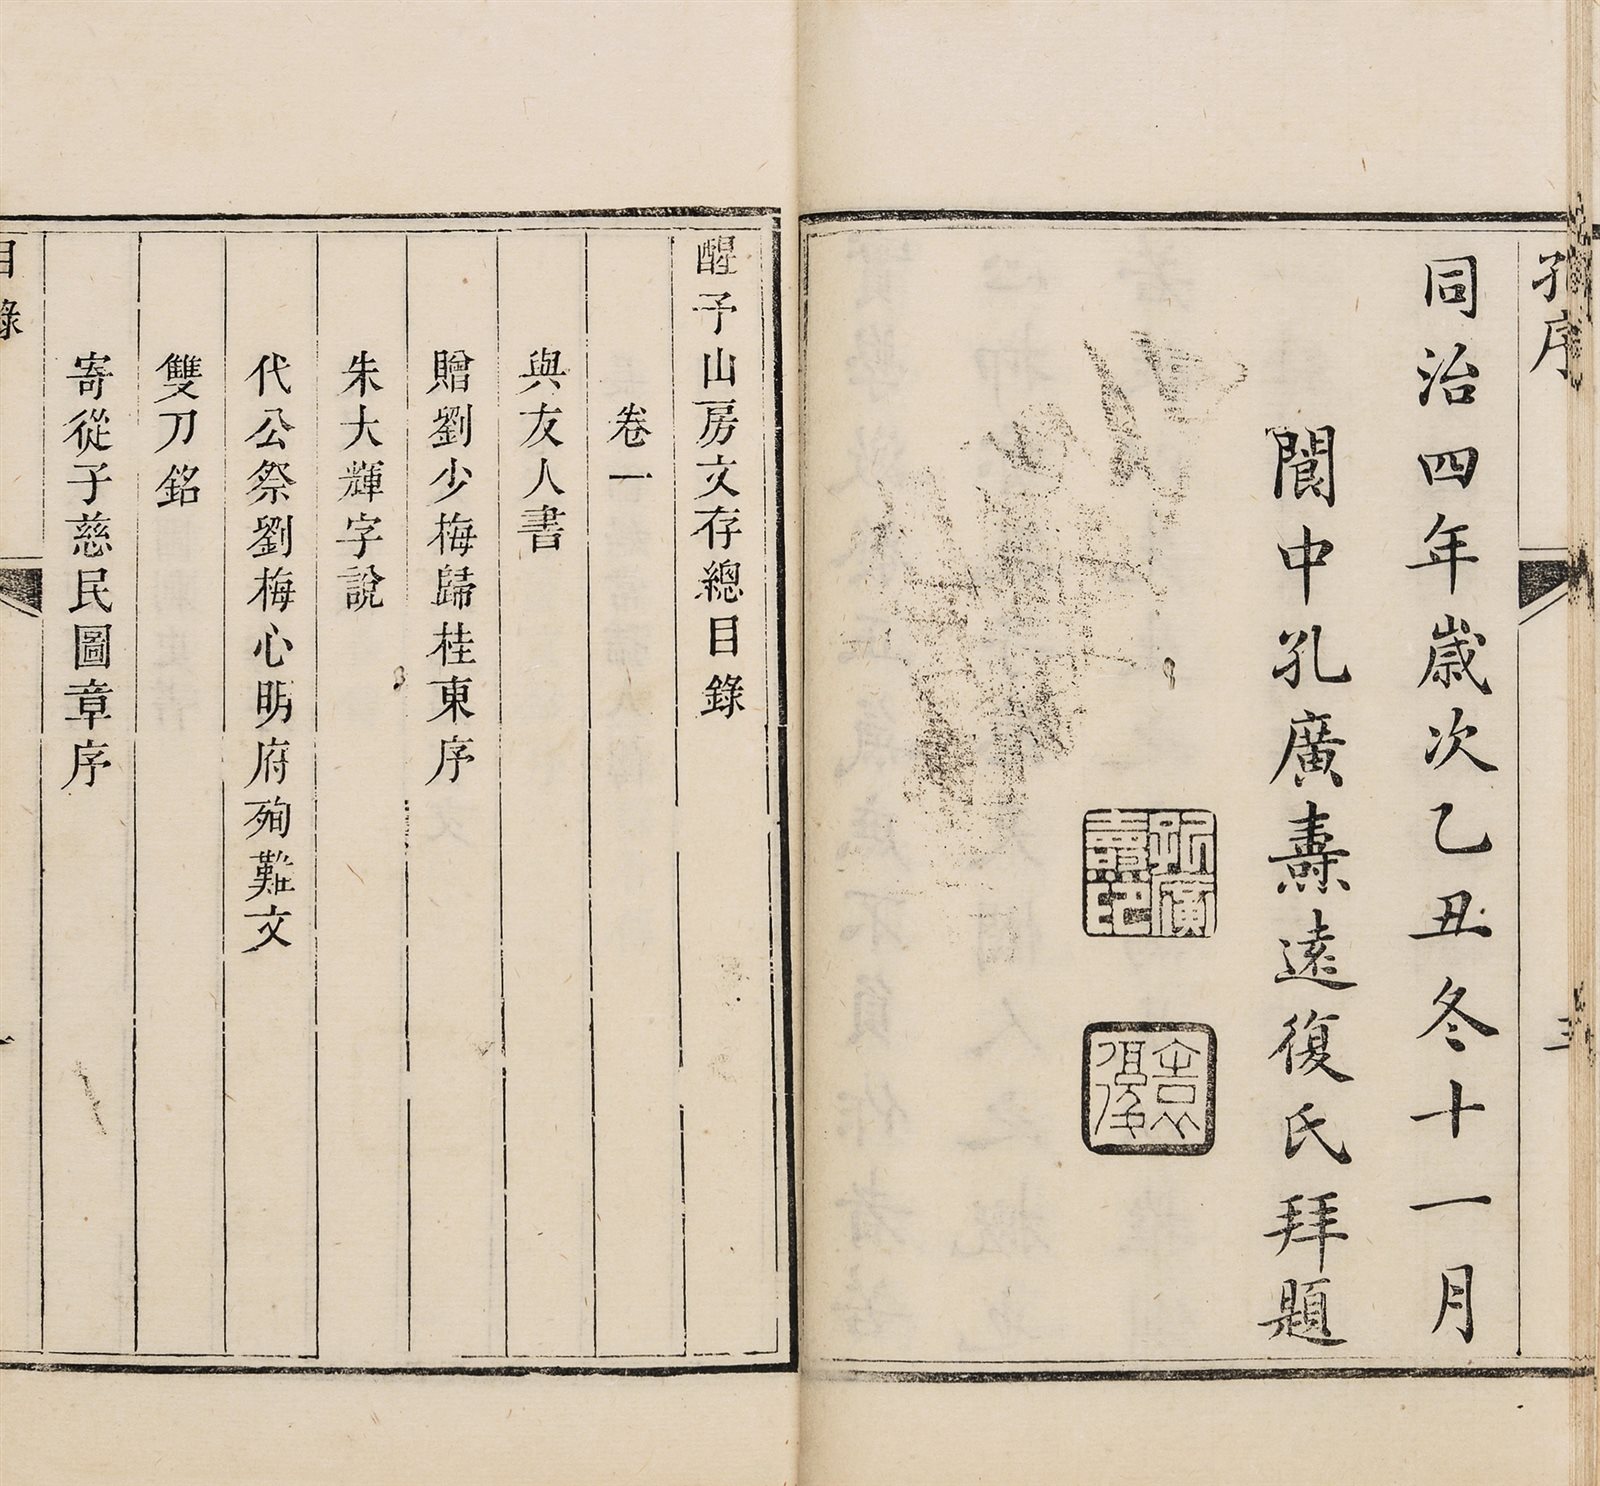 孔序
三
同治四年歲次乙丑冬十一月
閬中孔廣燾遠復氏拜題
孔廣
燾印
醒予山房文存總目錄
卷一
與友人書
贈劉少梅歸桂東序
朱大輝字說
代公祭劉梅心明府殉難文
雙刀銘
寄從子慈民圖章序
目錄
一